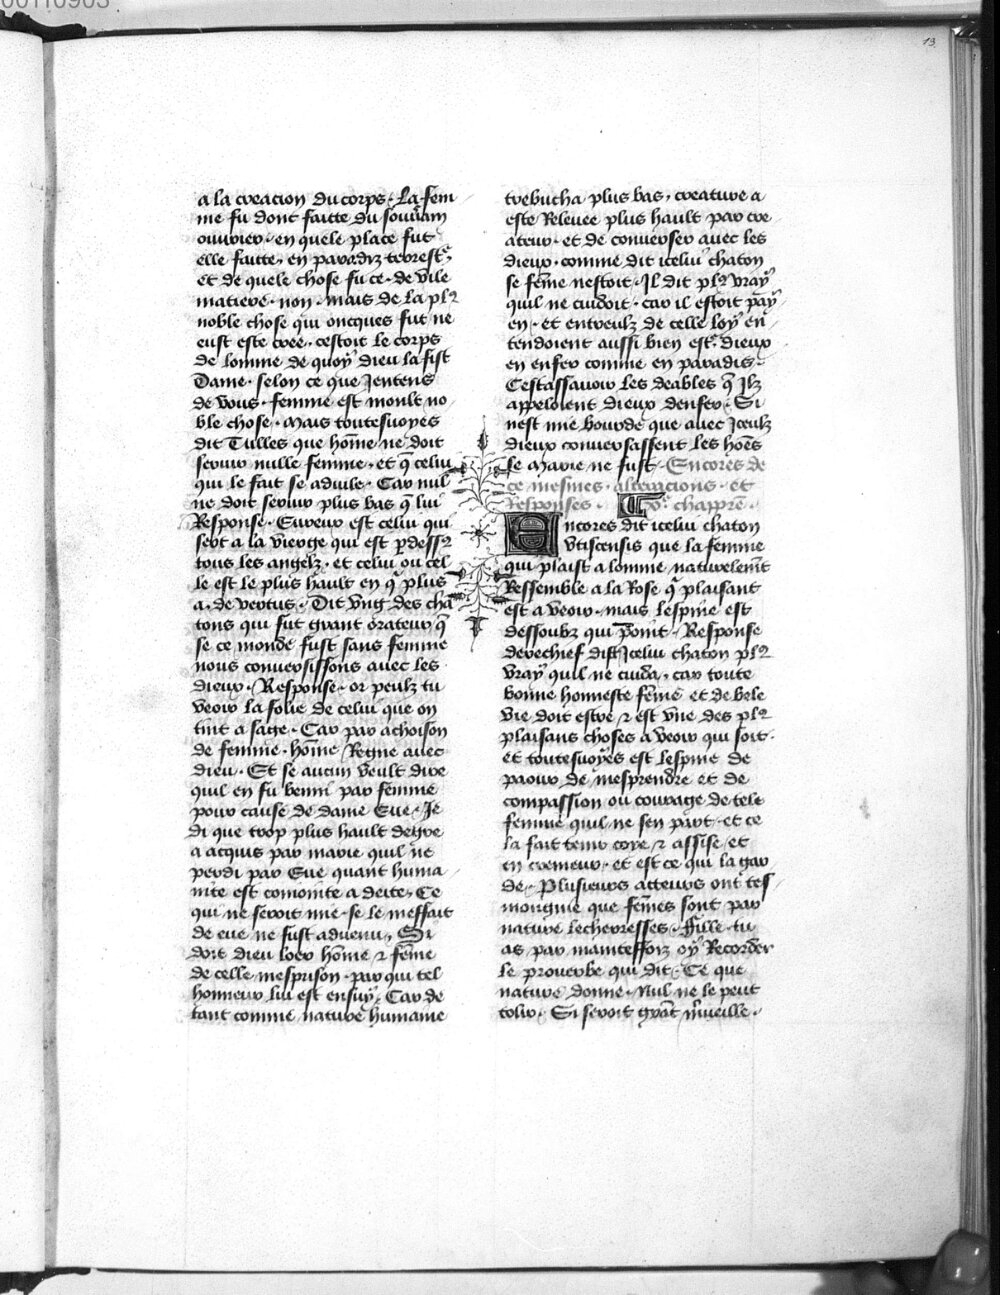 00110903
13
a la creacion du corps · La fem
me fu dont faitte du souuram
ouurier · en quele place fut
elle faitte, en paradiz terrestre,
et de quele chose fu ce · de vile
matiere · non · mais de la plꝰ
noble chose qui oncques fut ne
eust este cree, cestoit le corps
de lomme de quoy dieu la fist
Dame · selon ce que Jentens
de vous · femme est moult no
ble chose · Mais toutesuoyes
dit Tulles que hōme ne doit
seruir nulle femme · et q̄ celui
qui le fait se aduile · Car nul
ne doit seruir plus bas q̄ lui
Response · Eureux est celui qui
sert a la vierge qui est p̄dessꝰ
tous les angelz · et celui ou cel
le est le plus hault en q̄ plus
a · de vertus · Dit vng des cha
tons qui fut grant orateur q̄
se ce monde fust sans femme
nous conuersissons auec les
dieux · Response · or peulz tu
veoir la folie de celui que on
tint a sage · Car par achoison
de femme · hōme Regne auec
dieu · Et se aucun veult dire
quil en fu benni par femme
pour cause de dame Eue · Je
di que trop plus hault degre
a acquis par marie quil ne
perdi par Eue quant huma
nite est comointe a deite, Ce
qui ne seroit mie · se le meffait
de eue ne fust aduenu, Si
doit dieu loer hōme ⁊ fēme
de celle mesprison · par qui tel
honneur lui est ensuy, Car de
tant comme nature humaine
trebucha plus bas, creature a
este Releuee plus hault par cre
ateur · et de conuerser auec les
dieux · comme dit icelui chaton
se fēme nestoit · Il dit plꝰ vray
quil ne cuidoit · car il estoit pay
en · et entreulz de celle loy en
tendoient aussi bien estr̄ dieux
en enfer comme en paradis ·
Cestassauoir les deables q̄ Ilz
appeloient dieux denfer · Si
nest mie bourde que auec Iceulx
dieux conuersassent les hōes
se Marie ne fust · Encores de
ce mesmes · altercacions · et
Responses · Vᵉ chappr̄e ·
Encores dit icelui chaton
Vticensis que la femme
qui plaist a lomme naturelemt̄
Ressemble a la Rose q̄ plaisant
est a veoir · mais lespine est
dessoubz qui point · Response
derechief dist Icelui chaton plꝰ
vray quil ne cuida, car toute
bonne honneste fēme et de bele
vie doit estre ⁊ est vne des plꝰ
plaisans choses a veoir qui soit ·
et toutesuoyes est lespine de
paour de mesprendre et de
compassion ou courage de tele
femme quil ne sen part · et ce
la fait tenir coye ⁊ assise et
en cremeur · et est ce qui la gar
de · Plusieurs acteurs ont tes
moigne que fēmes sont par
nature lecheresses · Fille · tu
as par maintesfoiz oy Recorder
le prouerbe qui dit · Ce que
nature donne · Nul ne le peut
tolir · Si seroit grāt m̄ueille ·